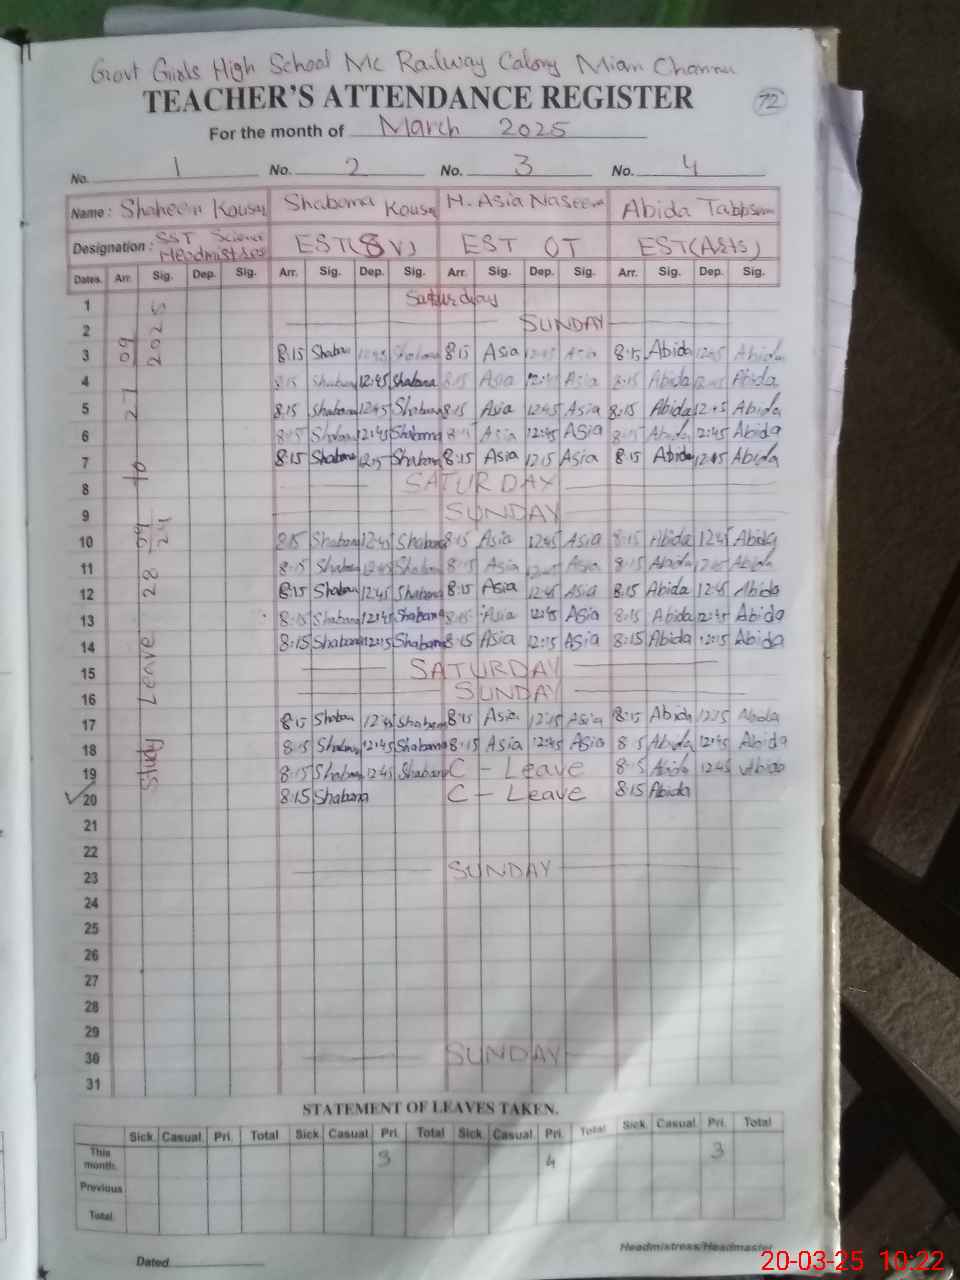 Govt Girls High School Mc Railway Colony Mian Channu
TEACHER'S ATTENDANCE REGISTER 72
For the month of March 2025
No. 1 No. 2 No. 3 No. 4
Name: Shaheen Kousar Shabana Kousar H. Asia Naseem Abida Tabbsum
Designation: SST Science Headmistress EST(SV) EST OT EST(Arts)
Dates. Arr. Sig. Dep. Sig. Arr. Sig. Dep. Sig. Arr. Sig. Dep. Sig. Arr. Sig. Dep. Sig.
Study Leave 28 09 24 to 27 09 2025
1 Saturday
2 SUNDAY
3 8:15 Shabana 12:45 Shabana 8:15 Asia 12:45 Asia 8:15 Abida 12:45 Abida
4 8:15 Shabana 12:45 Shabana 8:15 Asia 12:45 Asia 8:15 Abida 12:45 Abida
5 8:15 Shabana 12:45 Shabana 8:15 Asia 12:45 Asia 8:15 Abida 12:45 Abida
6 8:15 Shabana 12:45 Shabana 8:15 Asia 12:45 Asia 8:15 Abida 12:45 Abida
7 8:15 Shabana 12:15 Shabana 8:15 Asia 12:15 Asia 8:15 Abida 12:45 Abida
8 SATURDAY
9 SUNDAY
10 8:15 Shabana 12:45 Shabana 8:15 Asia 12:45 Asia 8:15 Abida 12:45 Abida
11 8:15 Shabana 12:45 Shabana 8:15 Asia 12:45 Asia 8:15 Abida 12:45 Abida
12 8:15 Shabana 12:45 Shabana 8:15 Asia 12:45 Asia 8:15 Abida 12:45 Abida
13 8:15 Shabana 12:45 Shabana 8:15 Asia 12:45 Asia 8:15 Abida 12:45 Abida
14 8:15 Shabana 12:15 Shabana 8:15 Asia 12:15 Asia 8:15 Abida 12:15 Abida
15 SATURDAY
16 SUNDAY
17 8:15 Shabana 12:45 Shabana 8:15 Asia 12:45 Asia 8:15 Abida 12:45 Abida
18 8:15 Shabana 12:45 Shabana 8:15 Asia 12:45 Asia 8:15 Abida 12:45 Abida
19 8:15 Shabana 12:45 Shabana C - Leave 8:15 Abida 12:45 Abida
20 8:15 Shabana C - Leave 8:15 Abida
21
22
23 SUNDAY
24
25
26
27
28
29
30 SUNDAY
31
STATEMENT OF LEAVES TAKEN.
Sick Casual Pri. Total Sick. Casual Pri. Total Sick. Casual Pri. Total Sick. Casual Pri. Total
This month. 3 4 3
Previous
Total
Headmistress/Headmaster
Dated
20-03-25 10:22